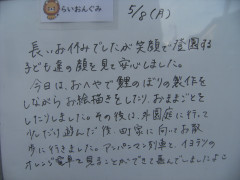 らいおんぐみ
5/8(月)
長いお休みでしたが笑顔で登園する
子ども達の顔を見て安心しました。
今日は、おへやで鯉のぼりの製作を
しながらお絵描きをしたり、おままごとを
したりしました。その後は、外園庭に行って
少しだけ遊んだ後、田
に向ってお散
歩に行きました。アンパンマン列車で、イヨテツの
オレンジ電車も見ることができて喜んでしましたよ